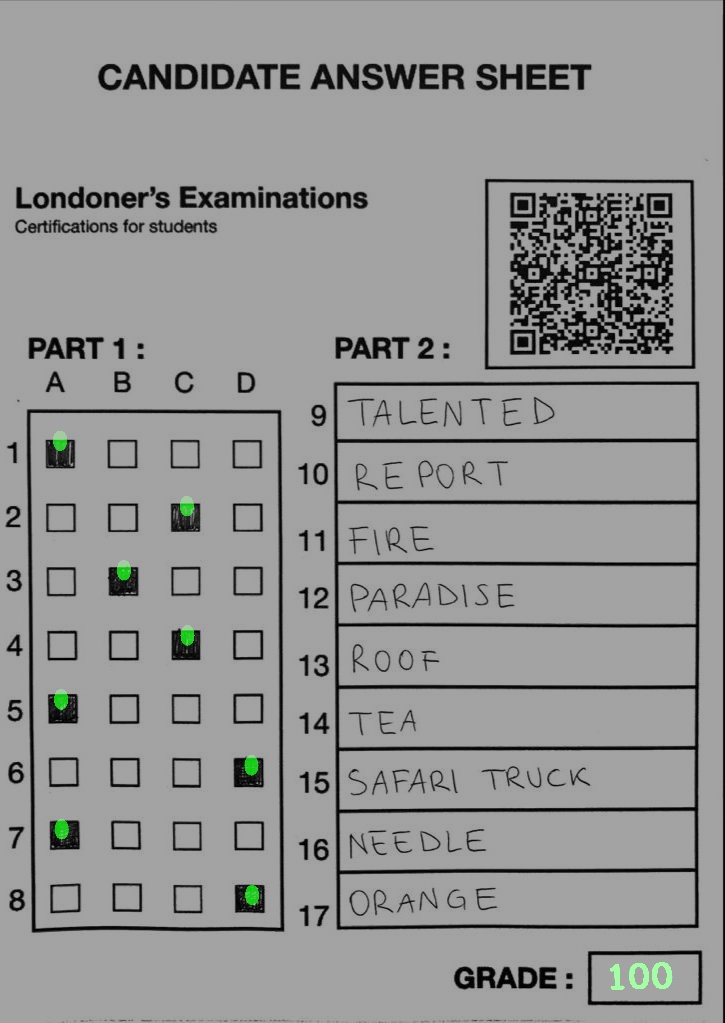 CANDIDATE ANSWER SHEET
Londoner's Examinations
Certifications for students
PART 1 :
A B C D
1
2
3
4
5
6
7
8
PART 2 :
9 TALENTED
10 REPORT
11 FIRE
12 PARADISE
13 ROOF
14 TEA
15 SAFARI TRUCK
16 NEEDLE
17 ORANGE
GRADE : 100